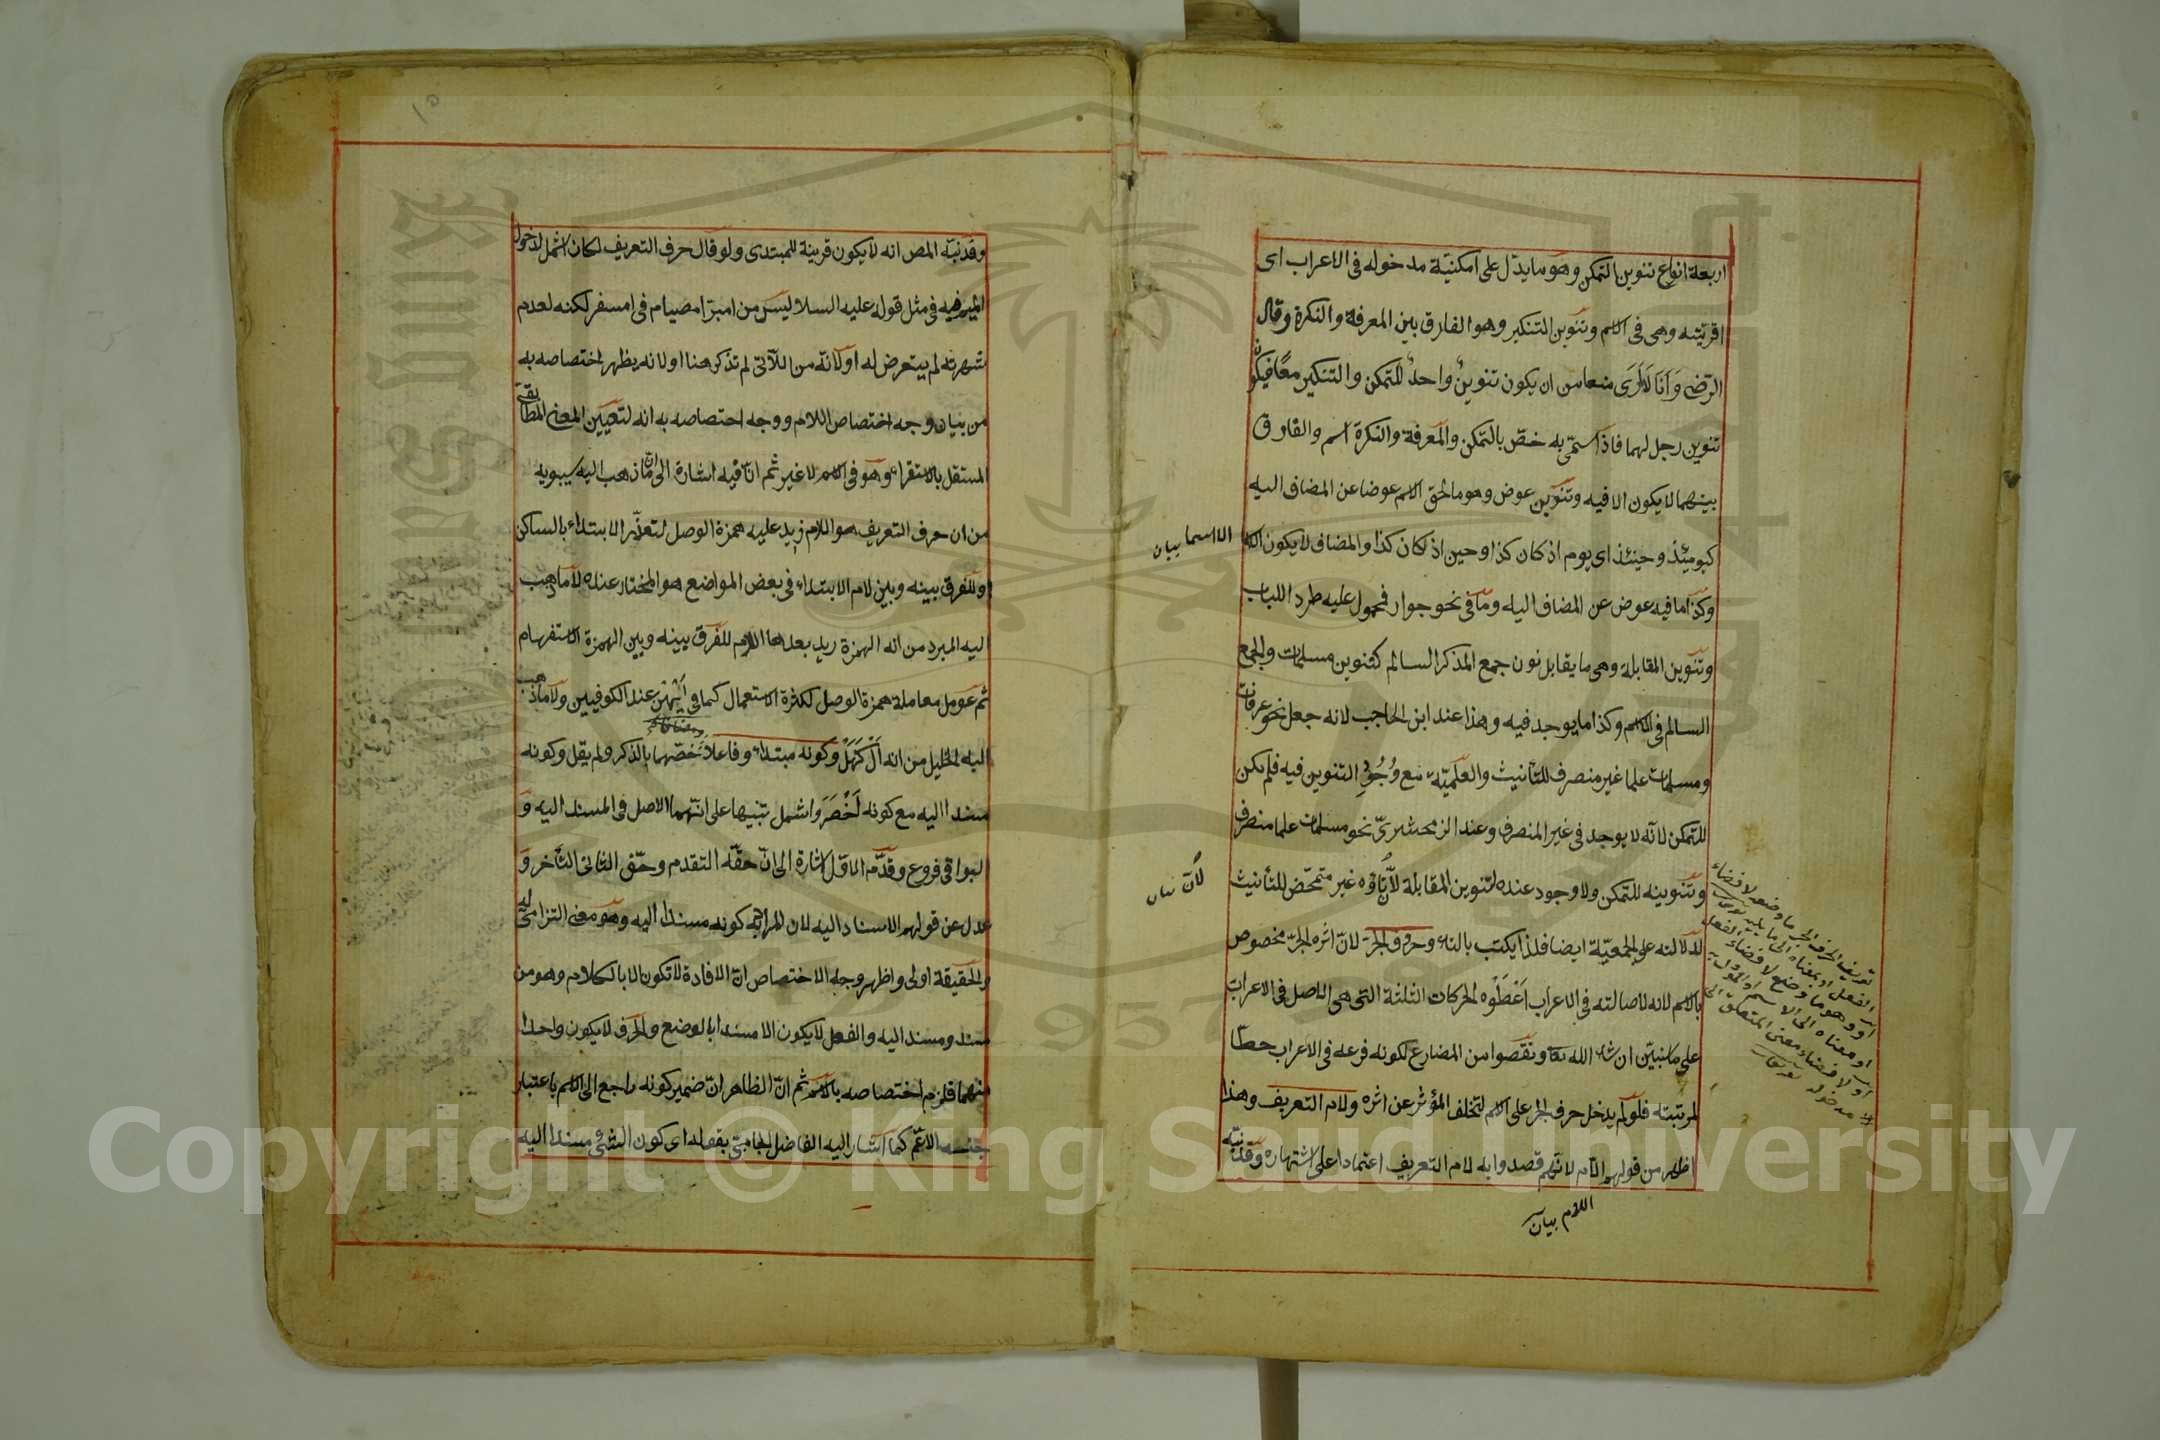 اربعة انواع تنوين التمكن وهو ما يدل على امكنية مدخوله في الاعراب اى
اقربيته وهى في الاسم وتنوين التنكير وهو الفارق بين المعرفة والنكرة وقال
الرضى وانا لا ارى منعا من ان يكون تنوين واحد للتمكن والتنكير معا فيكون
تنوين رجل لهما فاذا سمى به خص بالتمكن والمعرفة والنكرة اسم والفارق
بينهما لا يكون الا فيه وتنوين عوض وهو ما لحق الاسم عوضا عن المضاف اليه
كيومئذ وحينئذ اى يوم اذ كان كذا وحين اذ كان كذا والمضاف لا يكون الا اسما
وكذا ما فيه عوض عن المضاف اليه وما في نحو جوار فحمول عليه طرد اللباب
وتنوين المقابلة وهى ما يقابل نون جمع المذكر السالم كتنوين مسلمات والجمع
السالم في الاسم وكذا ما يوجد فيه وهذا عند ابن الحاجب لانه جعل نحو عرفات
ومسلمات علما غير منصرف للتأنيث والعلمية مع وجود التنوين فيه فلم يكن
للتمكن لانه لا يوجد في غير المنصرف وعند الزمحشرى نحو مسلمات علما منصرف
وتنوينه للتمكن ولا وجود عنده لتنوين المقابلة لان تاؤه غير متمحض للتأنيث
لدلالته على الجمعية ايضا فلذا يكتب بالتاء وحروف الجر لان اثره الجر مخصوص
بالاسم لانه لاصالته في الاعراب اعطوه الحركات الثلثة التى هى الاصل في الاعراب
على ما نبين ان شاء الله تعا ونقصوا من المضارع لكونه فرعه في الاعراب حطا
لمرتبته فلو لم يدخل حرف الجر على الاسم لتخلف المؤثر عن اثره ولام التعريف وهذا
اظهر من قولهم اللام لانهم قصدوا به لام التعريف اعتمادا على اشتهاره وقد نبه
الا اسما بيان
لان بيان
اللام بيان
وقد نبه المص انه لا يكون قرينة للمبتدى ولو قال حرف التعريف لكان اشمل لدخول
الميم فيه في مثل قوله عليه السلا ليس من امبر امصيام في امسفر لكنه لعدم
شهرته لم يتعرض له اولانه من اللآتى لم تذكر هنا اولانه يظهر اختصاصه به
من بيان وجه اختصاص اللام ووجه اختصاصه به انه لتعيين المعنى المطابقى
المستقل بالاستقراء وهو في الاسم لا غير ثم ان فيه اشارة الى ان ما ذهب اليه سيبويه
من ان حرف التعريف هو اللام زيد عليه همزة الوصل لتعذر الابتداء بالساكن
وللفرق بينه وبين لام الابتداء في بعض المواضع هو المختار عنده لا ما ذهب
اليه المبرد من انه الهمزة زيد بعدها اللام للفرق بينه وبين الهمزة الاستفهام
ثم عومل معاملة همزة الوصل لكثرة الاستعمال كما في ايمن عند الكوفيين ولا ما ذهب
اليه الخليل من انه ال كهل وكونه مبتداء وفاعلا خصهما بالذكر ولم يقل وكونه
مسندا اليه مع كونه اخصر واشمل تنبيها على انهما الاصل في المسند اليه و
البواقى فروع وقدم الاول اشارة الى ان حقه التقدم وحق الثانى التأخر و
عدل عن قولهم الاسناد اليه لان المراد به كونه مسندا اليه وهو معنى التزامى له
والحقيقة اولى واظهر وجه الاختصاص ان الافادة لا تكون الا بالكلام وهو من
مسند ومسند اليه والفعل لا يكون الا مسندا بالوضع والحرف لا يكون واحدا
منهما فلزم اختصاصه بالاسم ثم ان الظاهر ان ضمير كونه راجع الى الاسم باعتبار
جنسه الاعم كما اشار اليه الفاضل الجامى بقوله اى كون الشئ مسندا اليه
Copyright © King Saud University
1957